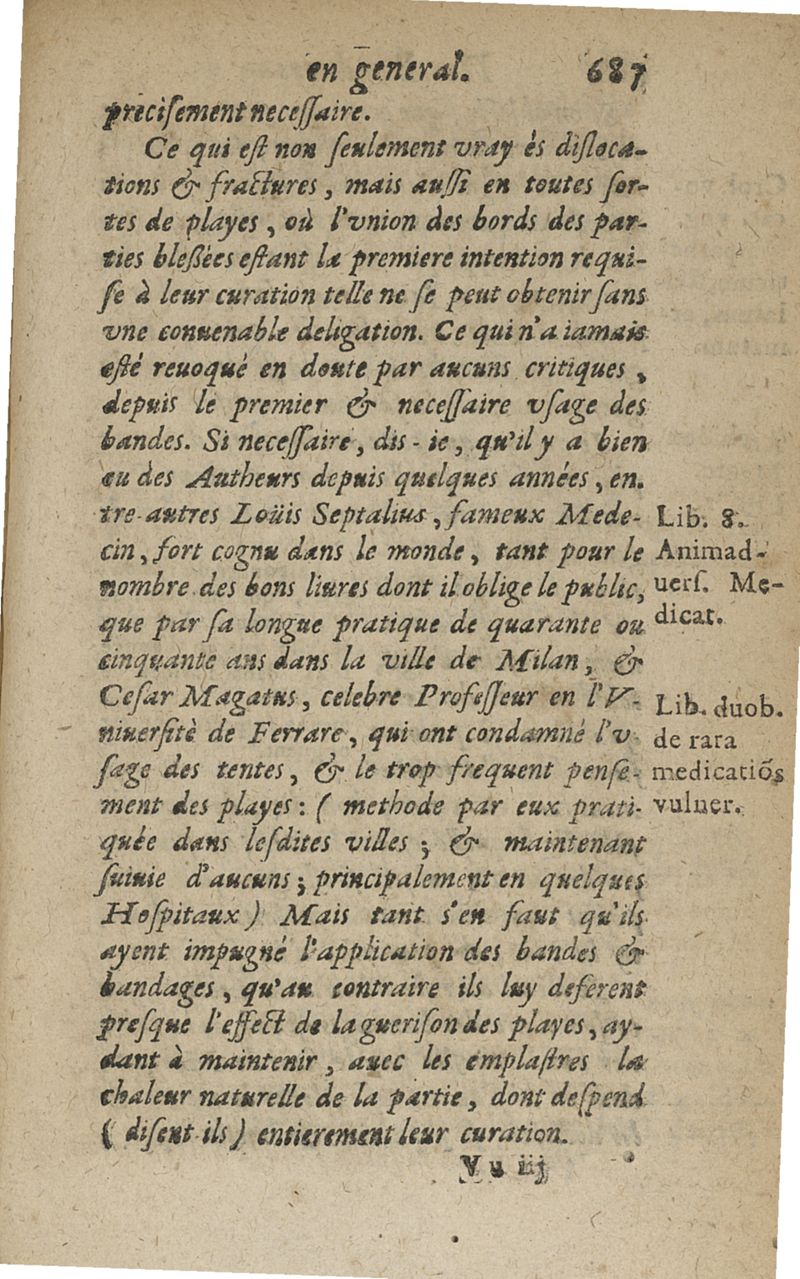 en general. 687
precisement necessaire.
Ce qui est non seulement vray és disloca-
tions & fractures, mais aussi en toutes sor-
tes de playes, où l'vnion des bords des par-
ties bleßées estant la premiere intention requi-
se à leur curation telle ne se peut obtenir sans
vne conuenable deligation. Ce qui n'a iamais
esté reuoqué en doute par aucuns critiques,
depuis le premier & necessaire vsage des
bandes. Si necessaire, dis-ie, qu'il y a bien
eu des Autheurs depuis quelques années, en-
tre autres Loüis Septalius, fameux Mede-
cin, fort cognu dans le monde, tant pour le
nombre des bons liures dont il oblige le public,
que par sa longue pratique de quarante ou
cinquante ans dans la ville de Milan, &
Cesar Magatus, celebre Professeur en l'V-
niuersité de Ferrare, qui ont condamné l'v-
sage des tentes, & le trop frequent pense-
ment des playes: ( methode par eux prati-
quée dans lesdites villes; & maintenant
suiuie d'aucuns; principalement en quelques
Hospitaux ) Mais tant s'en faut qu'ils
ayent impugné l'application des bandes &
bandages, qu'au contraire ils luy deferent
presque l'effect de la guerison des playes, ay-
dant à maintenir, auec les emplastres la
chaleur naturelle de la partie, dont despend
( disent-ils ) entierement leur curation.
Vu iij
Lib. 8.
Animad-
uers. Me-
dicat.
Lib. duob.
de rara
medicatiõs
vulner.